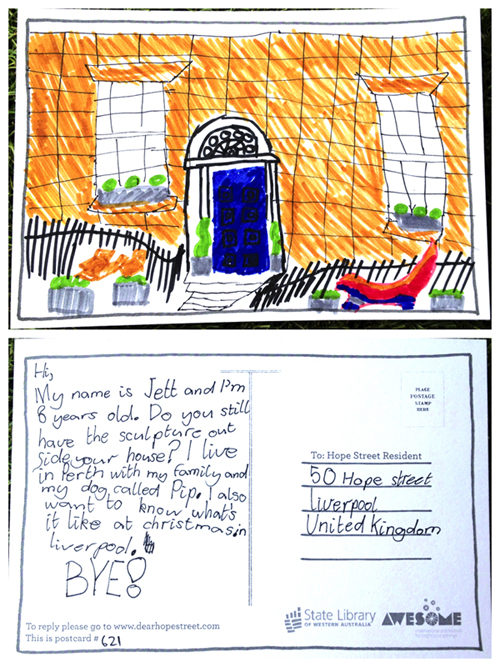 Hi,
My name is Jett and I'm
8 years old. Do you still
have the sculpture out
side your house? I live
in Perth with my family and
my dog called Pip. I also
want to know what's
it like at christmas in
liverpool.
BYE!
PLACE
POSTAGE
STAMP
HERE
To: Hope Street Resident
50 Hope street
Liverpool
United Kingdom
To reply please go to www.dearhopestreet.com
This is postcard # 621
State Library
OF WESTERN AUSTRALIA
AWESOME